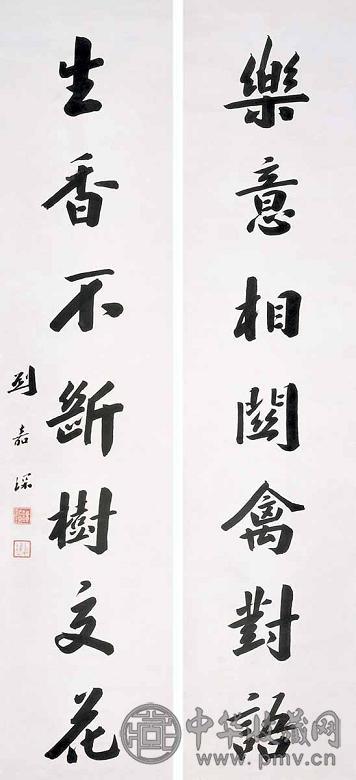 樂意相關禽對語
生香不斷樹交花
劉嘉琛
中华收藏网
www.pmv.cn